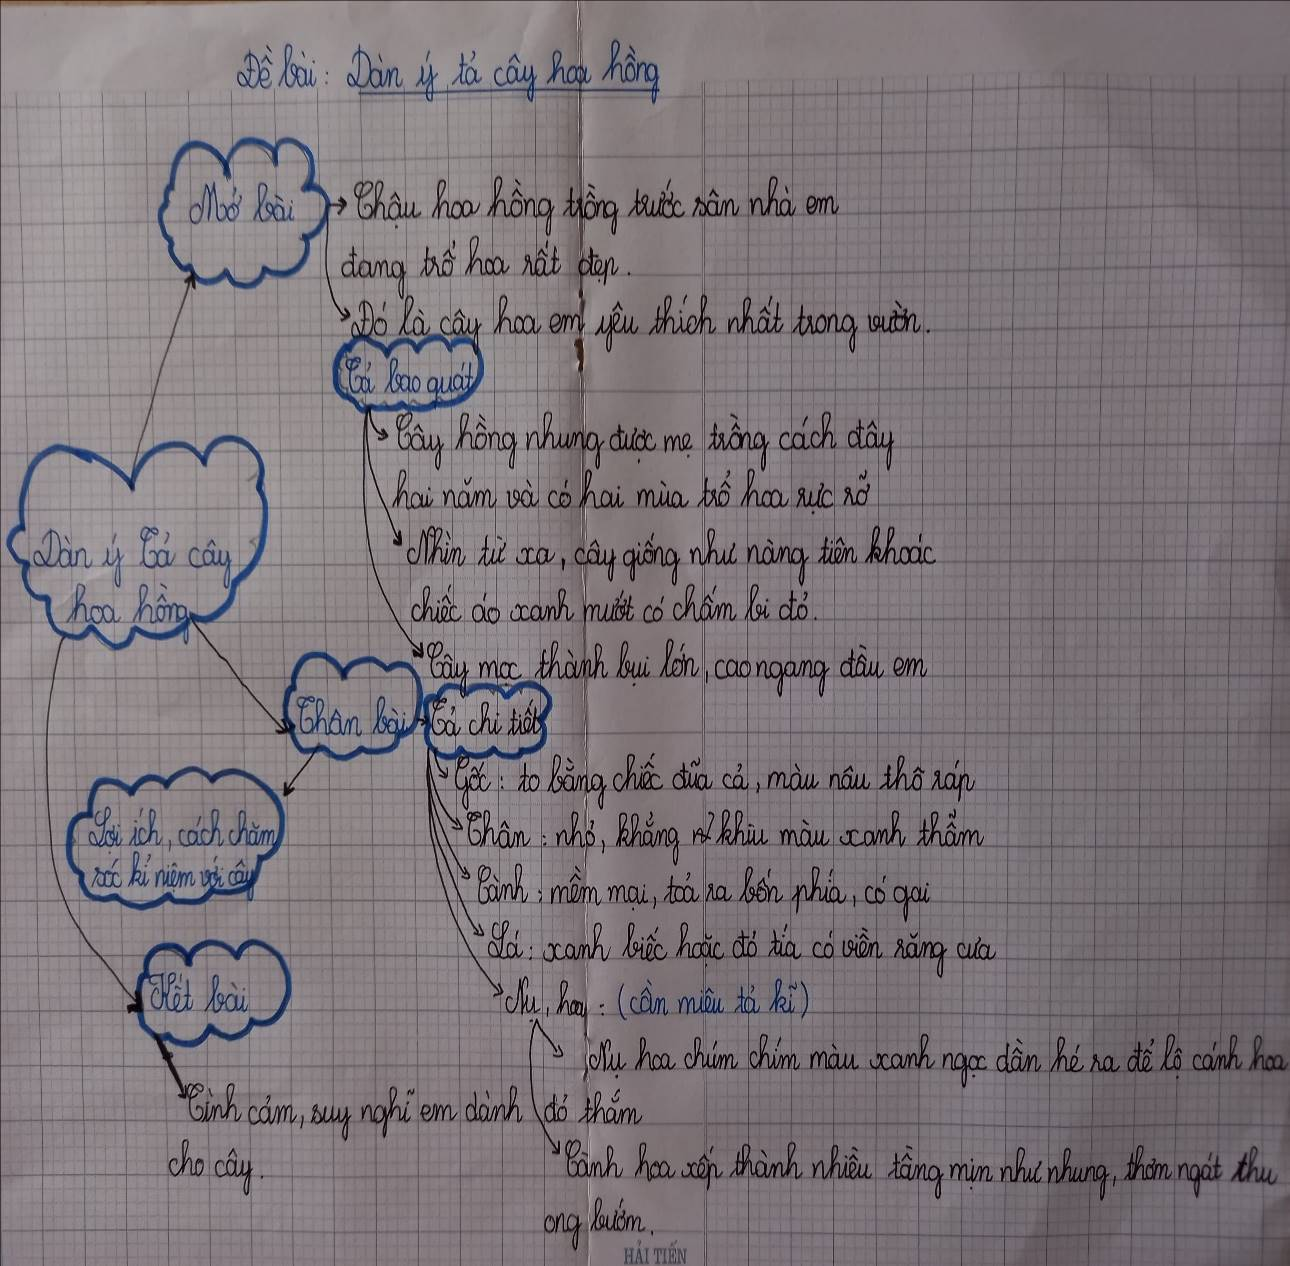 Đề bài: Dàn ý tả cây hoa hồng
Mở bài
Chậu hoa hồng trồng trước sân nhà em
đang trổ hoa rất đẹp.
Đó là cây hoa em yêu thích nhất trong vườn.
Tả bao quát
Cây hồng nhung được mẹ trồng cách đây
hai năm và có hai mùa trổ hoa rực rỡ
Nhìn từ xa, cây giống như nàng tiên khoác
chiếc áo xanh mướt có chấm bi đỏ.
Cây mọc thành bụi lớn, cao ngang đầu em
Dàn ý Tả cây
hoa hồng
Thân bài
Tả chi tiết
Gốc: to bằng chiếc đũa cả, màu nâu thô ráp
Thân: nhỏ, khẳng khiu màu xanh thẫm
Cành: mềm mại, toả ra bốn phía, có gai
Lá: xanh biếc hoặc đỏ tía có viền răng cưa
Nụ, hoa: (cần miêu tả kĩ)
Nụ hoa chúm chím màu xanh ngọc dần hé ra để lộ cánh hoa
đỏ thắm
Cánh hoa xếp thành nhiều tầng mịn như nhung, thơm ngát thu
ong bướm.
Lợi ích, cách chăm
sóc kỉ niệm với cây
Kết bài
Tình cảm, suy nghĩ em dành
cho cây.
HẢI TIẾN